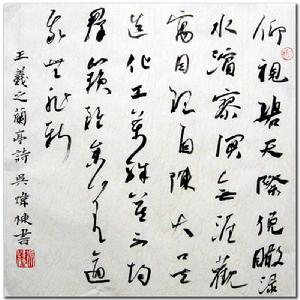 仰視碧天際俯瞰淥
水濱寥闃無涯觀
寓目理自陳大矣
造化工萬殊莫不均
群籟雖參差適
我無非新
王羲之蘭亭詩 吳煒陳書